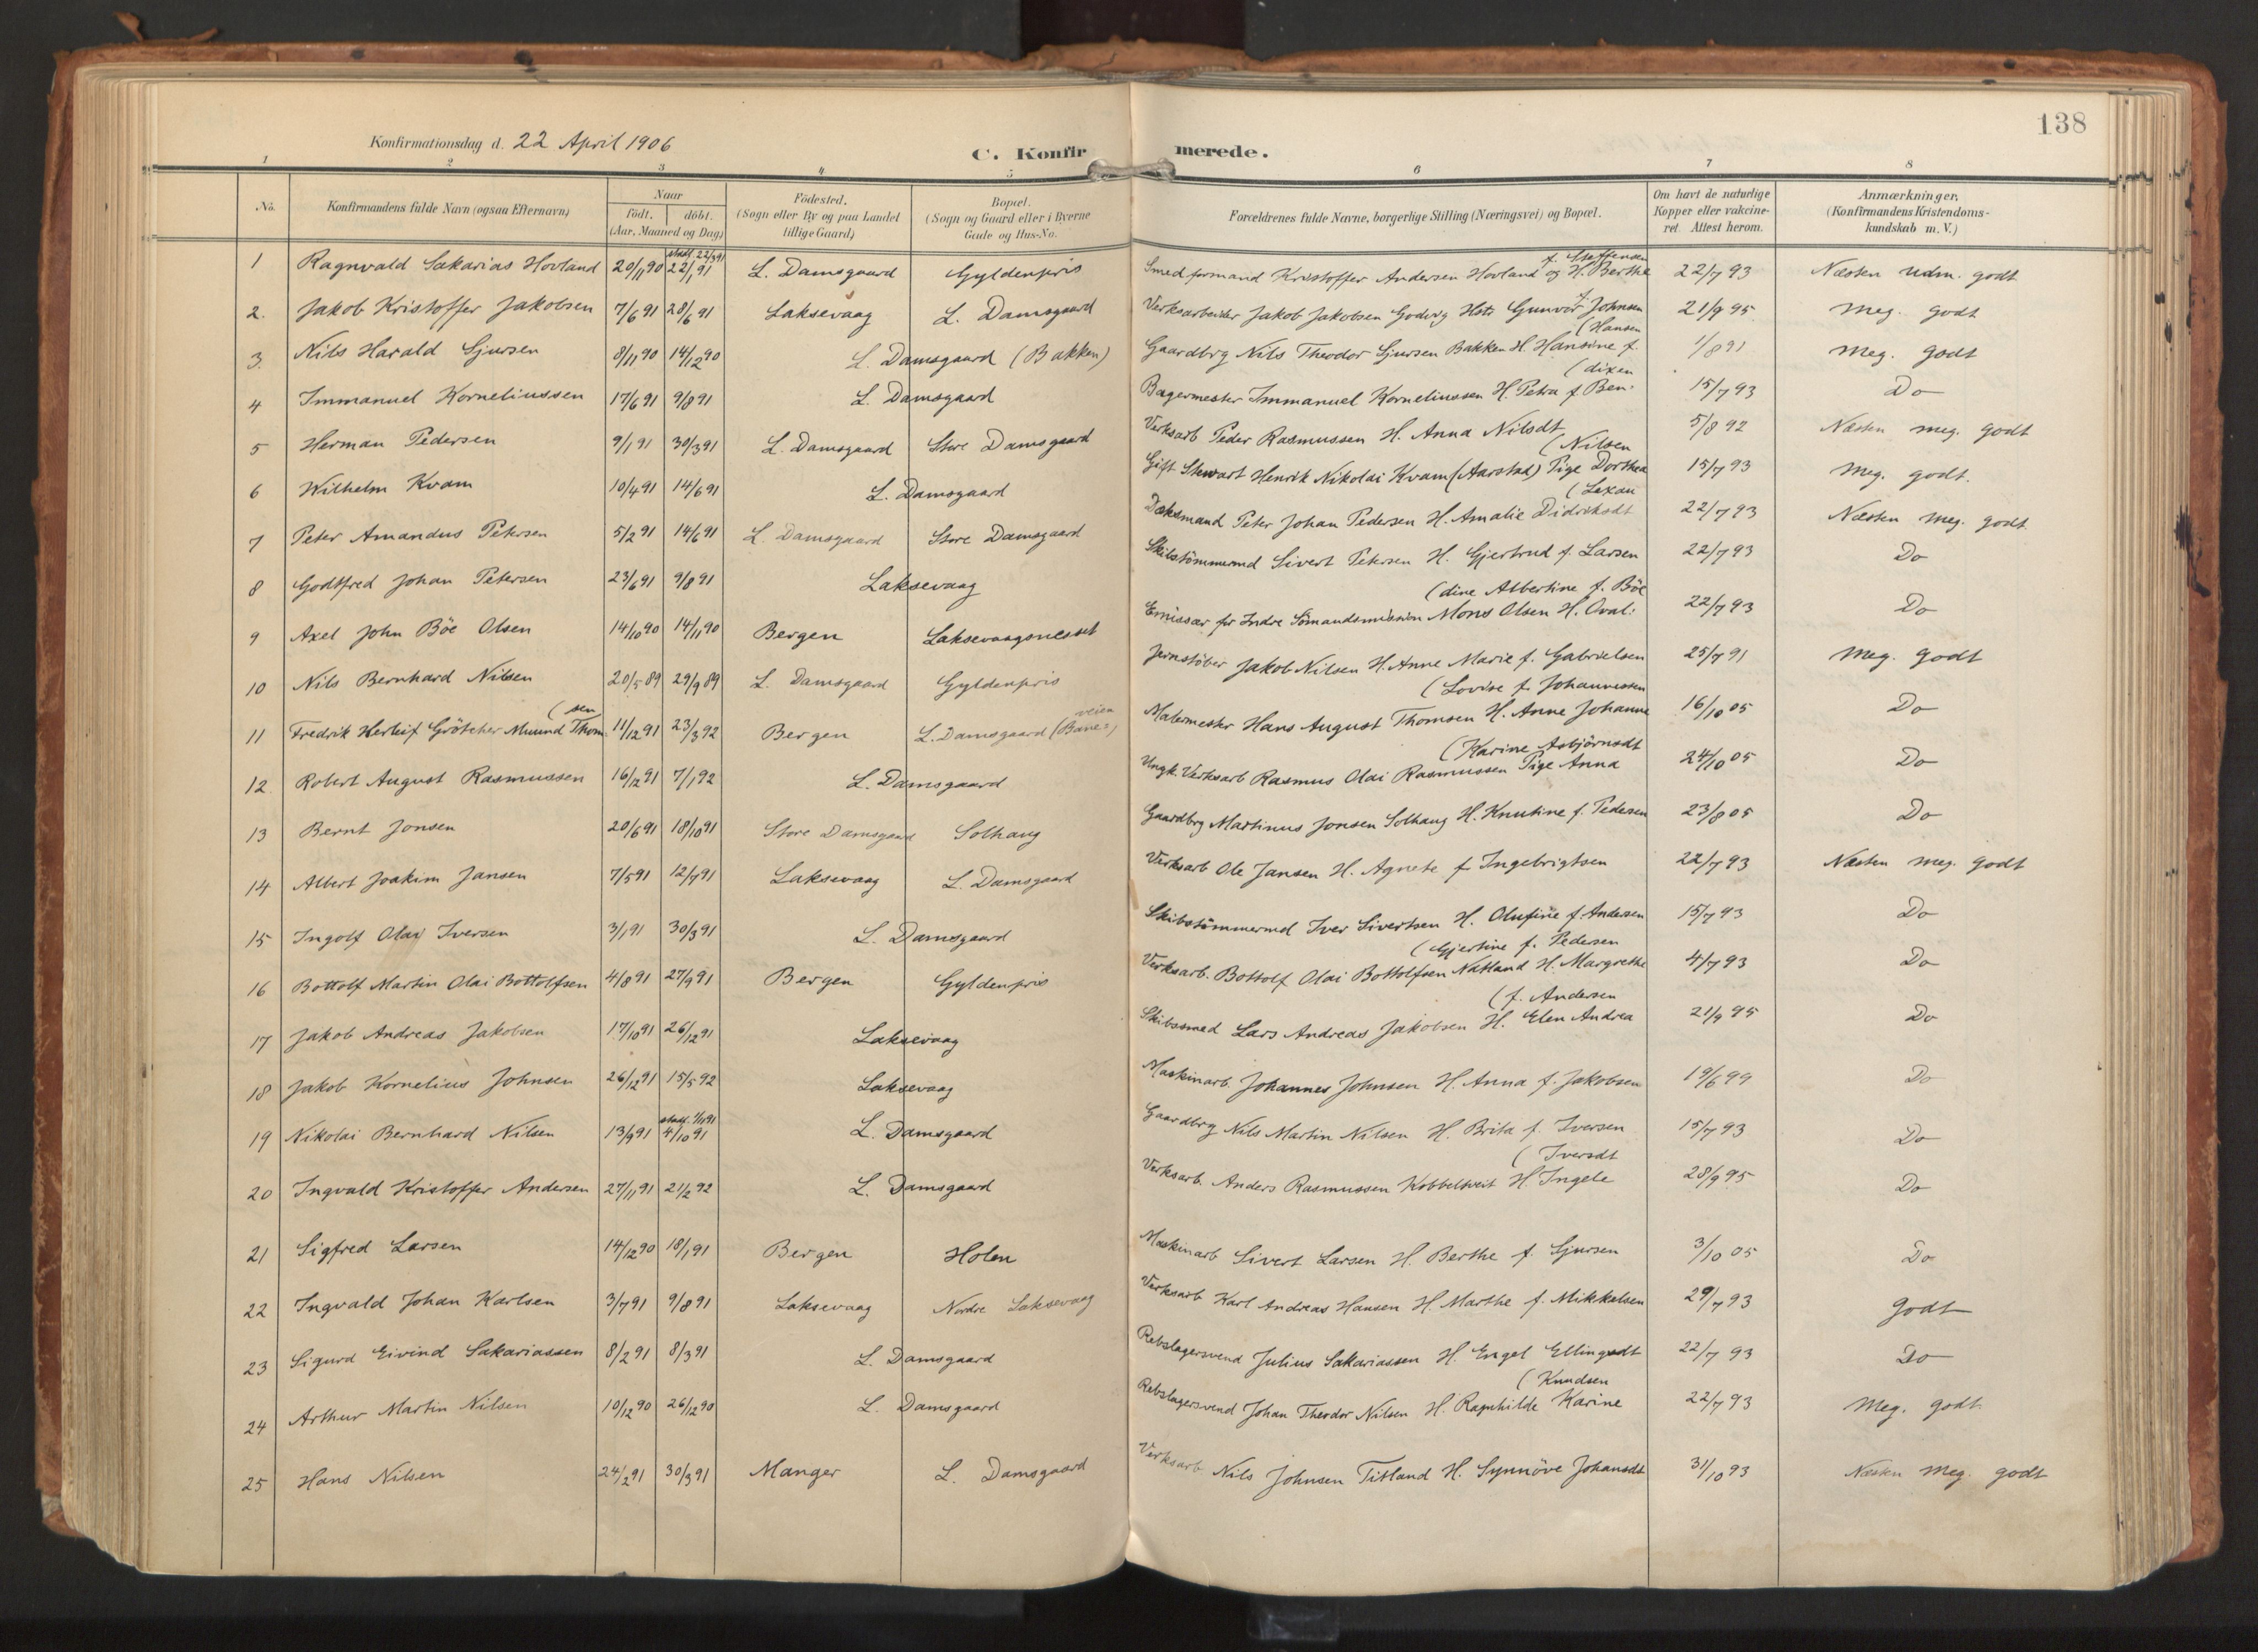 138
Konfirmationsdag d. 22 April 1906
C. Konfirmerede.
1 2 3 4 5 6 7 8
No. Konfirmandens fulde Navn (ogsaa Efternavn) Naar födt. döbt. (Aar, Maaned og Dag) Födested. (Sogn eller By og paa Landet tillige Gaard) Bopæl. (Sogn og Gaard eller i Byerne Gade og Hus-No. Forældrenes fulde Navne, borgerlige Stilling (Næringsvei) og Bopæl. Om havt de naturlige Kopper eller vakcineret. Attest herom. Anmærkninger. (Konfirmandens Kristendomskundskab m. V.)
stadf. 22/3 91 f. Steffensen
1 Ragnvald Sakarias Hovland 20/11 90 22/1 91 L. Damsgaard Gyldenpris Smedformand Kristoffer Andersen Hovland og H. Berthe 22/7 93 Næsten udm. godt
2. Jakob Kristoffer Jakobsen 7/6 91 28/6 91 Laksevaag L. Damsgaard Verksarbeider Jakob Jakobsen Godvig Hstr Gunvor f. Johnsen 21/9 95 Meg. godt
(Hansen
3. Nils Harald Gjursen 8/11 90 14/12 90 L. Damsgaard (Bakken) Gaardbrg Nils Theodor Gjursen Bakken H. Hansine f. 1/8 91 Meg. godt
(dixen
4 Immanuel Korneliussen 17/6 91 9/8 91 L. Damsgaard Bagermester Immanuel Korneliussen H. Petra f. Ben- 15/7 93 Do
5 Herman Pedersen 9/1 91 30/3 91 L. Damsgaard Store Damsgaard Verksarb Peder Rasmussen H. Anna Nilsdt 5/8 92 Næsten meg. godt
(Nilsen
6 Wilhelm Kvam 10/4 91 14/6 91 L. Damsgaard Gift Stewart Henrik Nikolai Kvam (Aarstad) Pige Dorthea 15/7 93 Meg. godt.
(Lexau
7 Peter Amandus Petersen 5/2 91 14/6 91 L. Damsgaard Store Damsgaard Dæksmand Peter Johan Pedersen H. Amalie Didriksdt 22/7 93 Næsten meg. godt
8 Godtfred Johan Petersen 23/6 91 9/8 91 Laksevaag Skibstömmermd Sivert Petersen H. Gjertrud f. Larsen 22/7 93 Do
(dine Albertine f. Böe
9 Axel John Böe Olsen 14/10 90 14/11 90 Bergen Laksevaagsnesset Emissær for Indre Sömandsmission Mons Olsen H. Oval- 22/7 93 Do
10 Nils Bernhard Nilsen 20/5 89 29/9 89 L. Damsgaard Gyldenpris Jernstöber Jakob Nilsen H. Anne Marie f. Gabrielsen 25/7 91 Meg. godt
(sen veien (Lovise f. Johannessen
11 Fredrik Herleif Grötcher Muund Thom- 11/12 91 23/3 92 Bergen L. Damsgaard (Bane=) Malermester Hans August Thomsen H. Anne Johanne 16/10 05 Do
(Karine Asbjörnsdt
12. Robert August Rasmussen 16/12 91 7/1 92 L. Damsgaard Ungk. Verksarb Rasmus Olai Rasmussen Pige Anna 24/10 05 Do
13 Bernt Jonsen 20/6 91 18/10 91 Store Damsgaard Solhaug Gaardbrg Martinus Jonsen Solhaug H. Knutine f. Pedersen 23/8 05 Do
14 Albert Joakim Jansen 7/5 91 12/7 91 Laksevaag L. Damsgaard Verksarb Ole Jansen H. Agnete f. Ingebrigtsen 22/7 93 Næsten meg. godt
15 Ingolf Olai Iversen 3/1 91 30/3 91 L. Damsgaard Skibstömmermd Iver Sivertsen H. Olufine f. Andersen 15/7 93 Do
(Gjertine f. Pedersen
16 Bottolf Martin Olai Bottolfsen 4/8 91 27/9 91 Bergen Gyldenpris Verksarb. Bottolf Olai Bottolfsen Natland H. Margrethe 4/7 93 Do
(f. Andersen
17 Jakob Andreas Jakobsen 17/10 91 26/12 91 Laksevaag Skibssmed Lars Andreas Jakobsen H. Elen Andrea 21/9 95 Do
18 Jakob Kornelius Johnsen 26/12 91 15/5 92 Laksevaag Maskinarb. Johannes Johnsen H. Anna f. Jakobsen 19/6 99 Do
stadf. 1/11 91
19 Nikolai Bernhard Nilsen 13/9 91 4/10 91 L. Damsgaard Gaardbrg Nils Martin Nilsen H. Brita f. Iversen 15/7 93 Do
(Iversdt
20 Ingvald Kristoffer Andersen 27/11 91 21/2 92 L. Damsgaard Verksarb. Anders Rasmussen Kobbeltveit H. Ingele 28/9 95 Do
21 Sigfred Larsen 14/12 90 18/1 91 Bergen Holen Maskinarb Sivert Larsen H. Berthe f. Gjursen 3/10 05 Do
22 Ingvald Johan Karlsen 3/7 91 9/8 91 Laksevaag Nordre Laksevaag Verksarb Karl Andreas Hansen H. Marthe f. Mikkelsen 29/7 93 Godt
23 Sigurd Eivind Sakariassen 8/2 91 8/3 91 L. Damsgaard Rebslagersvend Julius Sakariassen H. Engel Ellingsdt 22/7 93 Do
(Knudsen
24 Arthur Martin Nilsen 10/12 90 26/12 90 L. Damsgaard Rebslagersvend Johan Theodor Nilsen H. Ragnhilde Karine 22/7 93 Meg. godt
25 Hans Nilsen 24/2 91 30/3 91 Manger L. Damsgaard Verksarb Nils Johnsen Titland H. Synnöve Johansdt 31/10 93 Næsten meg. godt